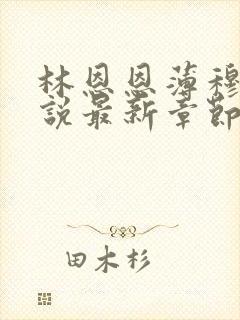 林恩恩薄穆
說最新章節
田木杉